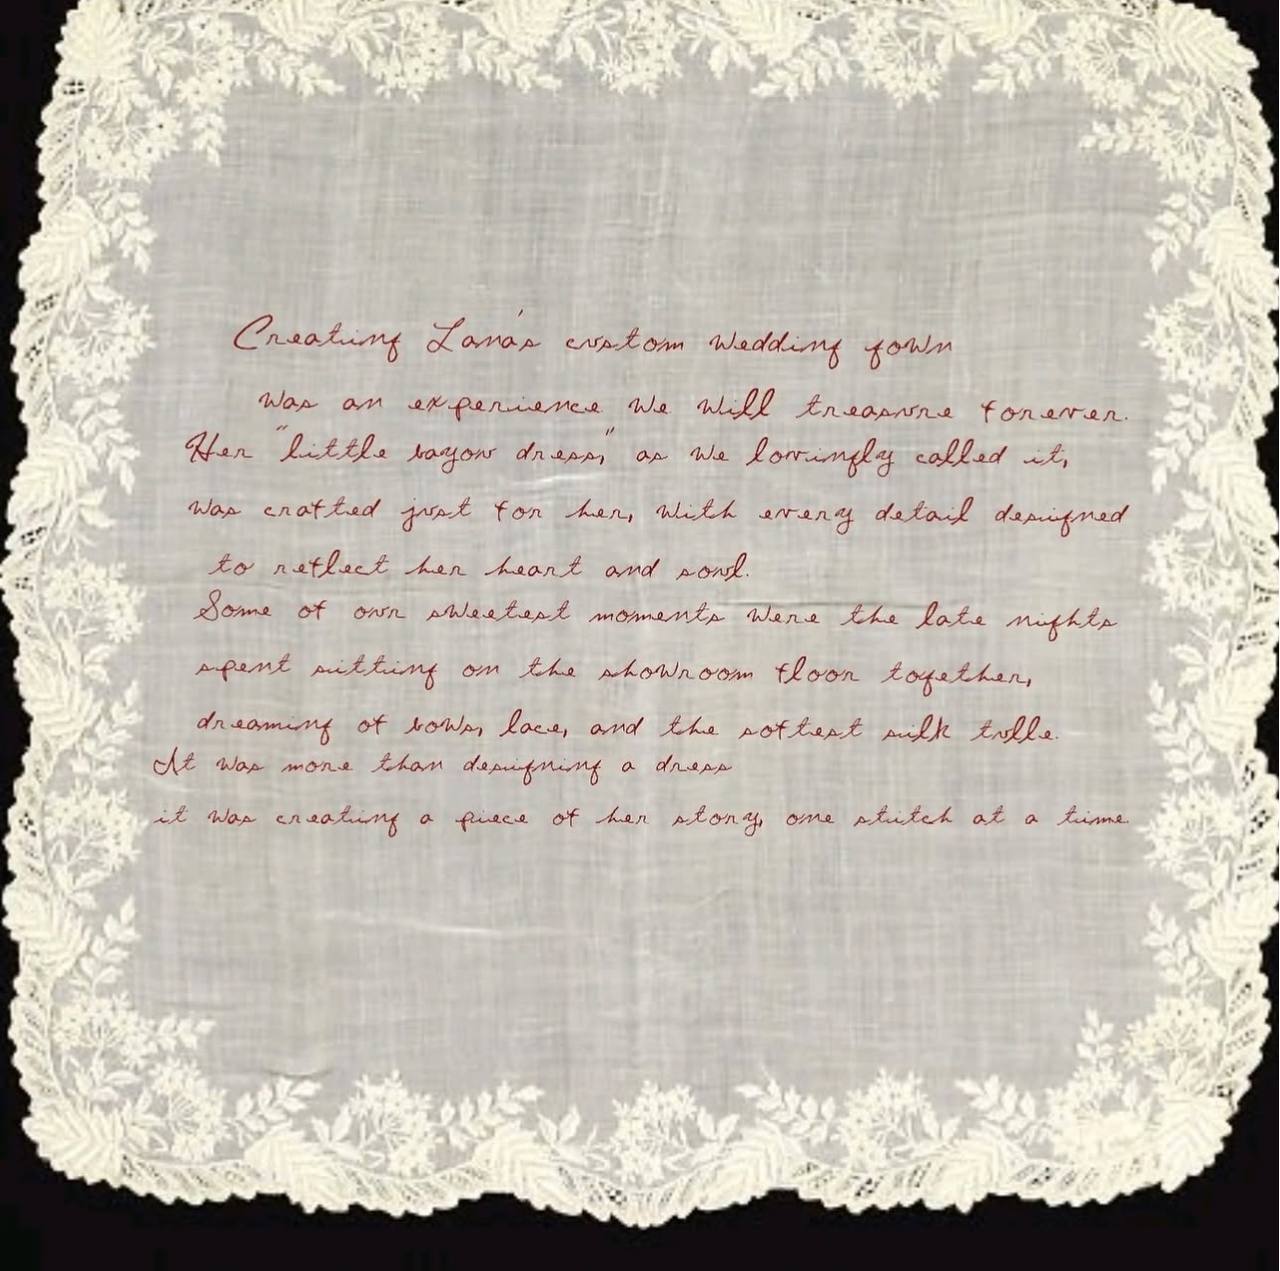 Creating Lana's custom wedding gown
was an experience we will treasure forever.
Her "little bayou dress," as we lovingly called it,
was crafted just for her, with every detail designed
to reflect her heart and soul.
Some of our sweetest moments were the late nights
spent sitting on the showroom floor together,
dreaming of bows, lace, and the softest silk tulle.
It was more than designing a dress
it was creating a piece of her story, one stitch at a time.